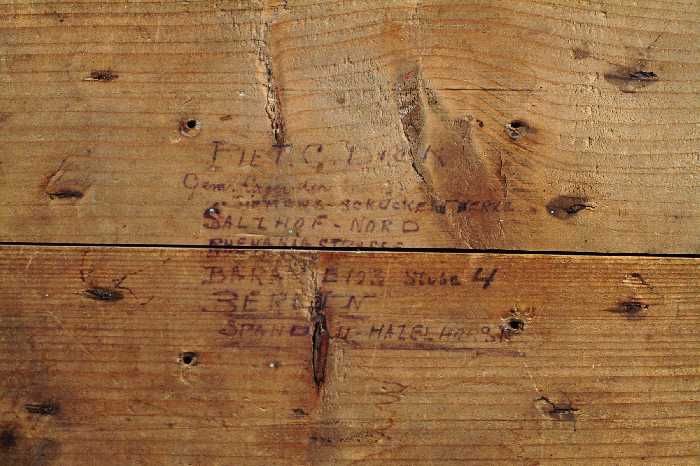 PIET C. DICK
Gem. Lager der
SIEMENS-SCHUCKERTWERKE
SALZHOF-NORD
RHENANIASTRASSE
BARAKE 193 Stube 4
BERLIN
SPANDAU-HAZELHORST